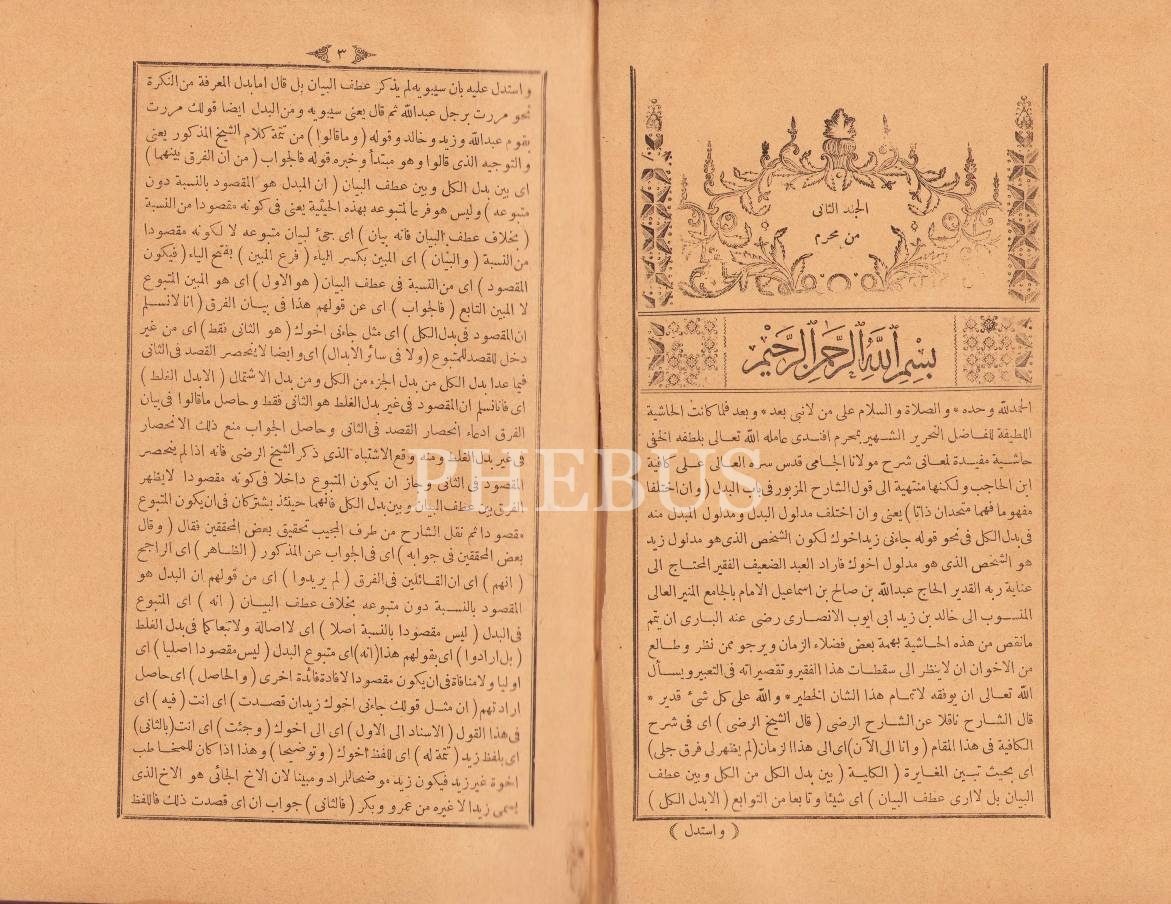 الجلد الثانى
من محرم
بسم الله الرحمن الرحيم
الحمدلله وحده * والصلاة والسلام على من لانبى بعد * وبعد فلما كانت الحاشية
اللطيفة للفاضل النحرير الشهير بمحرم افندى عامله الله تعالى بلطفه الخفى
حاشية مفيدة لمعانى شرح مولانا الجامى قدس سره العالى على كافية
ابن الحاجب ولكنها منتهية الى قول الشارح المزبور فى باب البدل ( وان اختلفا
مفهوما فهما متحدان ذاتا ) يعنى وان اختلف مدلول البدل ومدلول المبدل منه
فى بدل الكل فى نحو قوله جاءنى زيد اخوك لكون الشخص الذى هو مدلول زيد
هو الشخص الذى هو مدلول اخوك فاراد العبد الضعيف الفقير المحتاج الى
عناية ربه القدير الحاج عبدالله بن صالح بن اسماعيل الامام بالجامع المنير العالى
المنسوب الى خالد بن زيد ابى ايوب الانصارى رضى عنه البارى ان يتم
مانقص من هذه الحاشية بهمة بعض فضلاء الزمان ويرجو ممن نظر وطالع
من الاخوان ان لاينظر الى سقطات هذا الفقير وتقصيراته فى التعبير ويسأل
الله تعالى ان يوفقه لاتمام هذا الشان الخطير * والله على كل شئ قدير *
قال الشارح ناقلا عن الشارح الرضى ( قال الشيخ الرضى ) اى فى شرح
الكافية فى هذا المقام ( وانا الى الآن ) اى الى هذا الزمان ( لم يظهر لى فرق جلى )
اى بحيث تبين المغايرة ( الكلية ) ( بين بدل الكل من الكل وبين عطف
البيان بل لاارى عطف البيان ) اى شيئا وتابعا من التوابع ( الابدل الكل )
( واستدل )
٣
واستدل عليه بان سيبويه لم يذكر عطف البيان بل قال اما بدل المعرفة من النكرة
نحو مررت برجل عبدالله ثم قال يعنى سيبويه ومن البدل ايضا قولك مررت
بقوم عبدالله وزيد وخالد وقوله ( وماقالوا ) من تتمة كلام الشيخ المذكور يعنى
والتوجيه الذى قالوا وهو مبتدأ وخبره قوله فالجواب ( من ان الفرق بينهما )
اى بين بدل الكل وبين عطف البيان ( ان البدل هو المقصود بالنسبة دون
متبوعه ) وليس هو فرعا لمتبوعه بهذه الحيثية يعنى فى كونه مقصودا من النسبة
( بخلاف عطف البيان فانه بيان ) اى جئ لبيان متبوعه لا لكونه مقصودا
من النسبة ( والبيان ) اى المبين بكسر الياء ( فرع المبين ) بفتح الياء ( فيكون
المقصود ) اى من النسبة فى عطف البيان ( هو الاول ) اى هو المبين المتبوع
لا المبين التابع ( فالجواب ) اى عن قولهم هذا فى بيان الفرق ( انا لانسلم
ان المقصود فى بدل الكل ) اى مثل جاءنى اخوك ( هو الثانى فقط ) اى من غير
دخل للقصد للمتبوع ( ولا فى سائر الابدال ) اى وايضا لاينحصر القصد فى الثانى
فيما عدا بدل الكل من بدل الجزء من الكل ومن بدل الاشتمال ( الابدل الغلط )
اى فانا نسلم ان المقصود فى غير بدل الغلط هو الثانى فقط وحاصل ماقالوا فى بيان
الفرق ادعاء انحصار القصد فى الثانى وحاصل الجواب منع ذلك الانحصار
فى غير بدل الغلط ومنه وقع الاشتباه الذى ذكر الشيخ الرضى فانه اذا لم ينحصر
المقصود فى الثانى وجاز ان يكون المتبوع داخلا فى كونه مقصودا لايظهر
الفرق بين عطف البيان وبين بدل الكل فانهما حينئذ يشتركان فى ان يكون المتبوع
مقصودا ثم نقل الشارح من طرف المجيب تحقيق بعض المحققين فقال ( وقال
بعض المحققين فى جوابه ) اى فى الجواب عن المذكور ( الظاهر ) اى الراجح
( انهم ) اى ان القائلين فى الفرق ( لم يريدوا ) اى من قولهم ان البدل هو
المقصود بالنسبة دون متبوعه بخلاف عطف البيان ( انه ) اى المتبوع
فى البدل ( ليس مقصودا بالنسبة اصلا ) اى لا اصالة ولا تبعا كما فى بدل الغلط
( بل ارادوا ) اى بقولهم هذا ( انه ) اى متبوع البدل ( ليس مقصودا اصليا ) اى
اوليا ولا منافاة فى ان يكون مقصودا لافادة فائدة اخرى ( والحاصل ) اى حاصل
ارادتهم ( ان مثل قولك جاءنى اخوك زيد ان قصدت ) اى انت ( فيه ) اى
فى هذا القول ( الاسناد الى الاول ) اى الى اخوك ( وجئت ) اى انت ( بالثانى )
اى بلفظ زيد ( تتمة له ) اى للفظ اخوك ( وتوضيحا ) وهذا اذا كان للمخاطب
اخوة غير زيد فيكون زيد موضحا للمراد ومبينا لان الاخ الجائى هو الاخ الذى
يسمى زيدا لا غيره من عمرو وبكر ( فالثانى ) جواب ان اى قصدت ذلك فاللفظ
PHEBUS